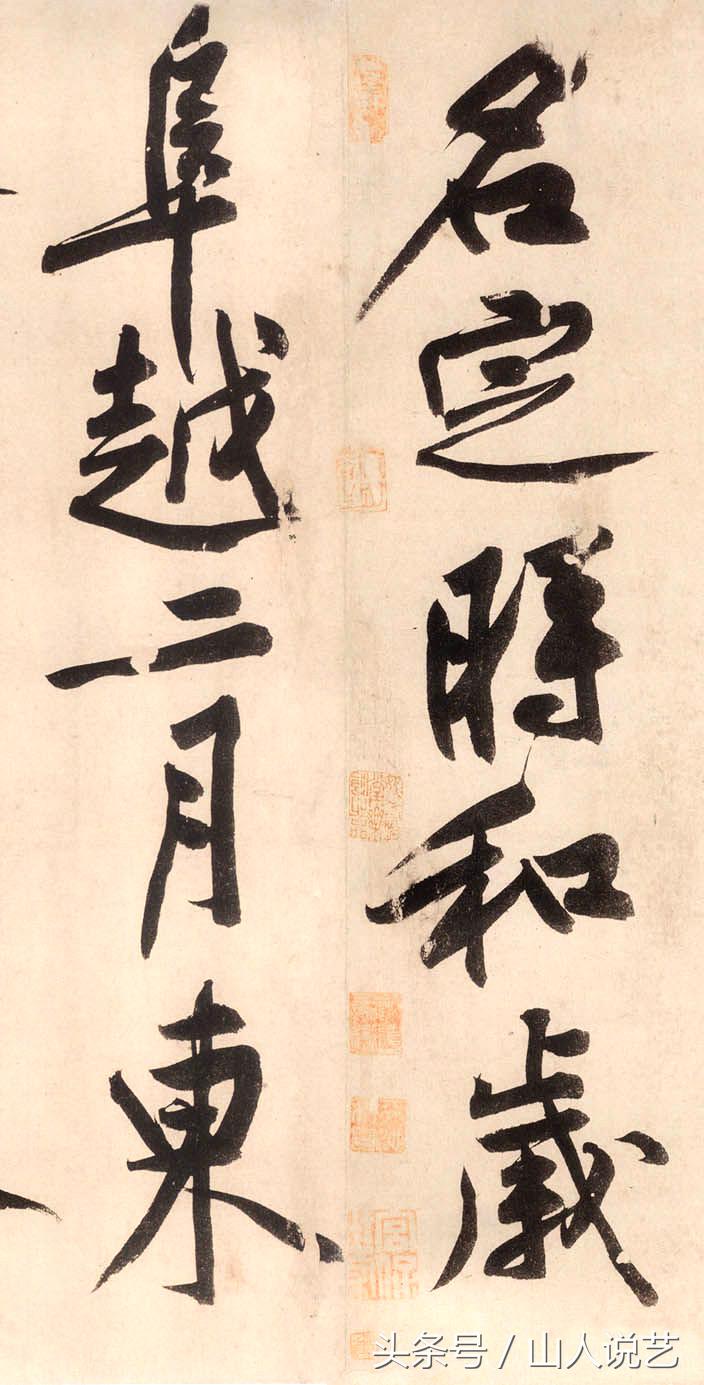 名定時和歲
阜越二月東
头条号 / 山人说艺